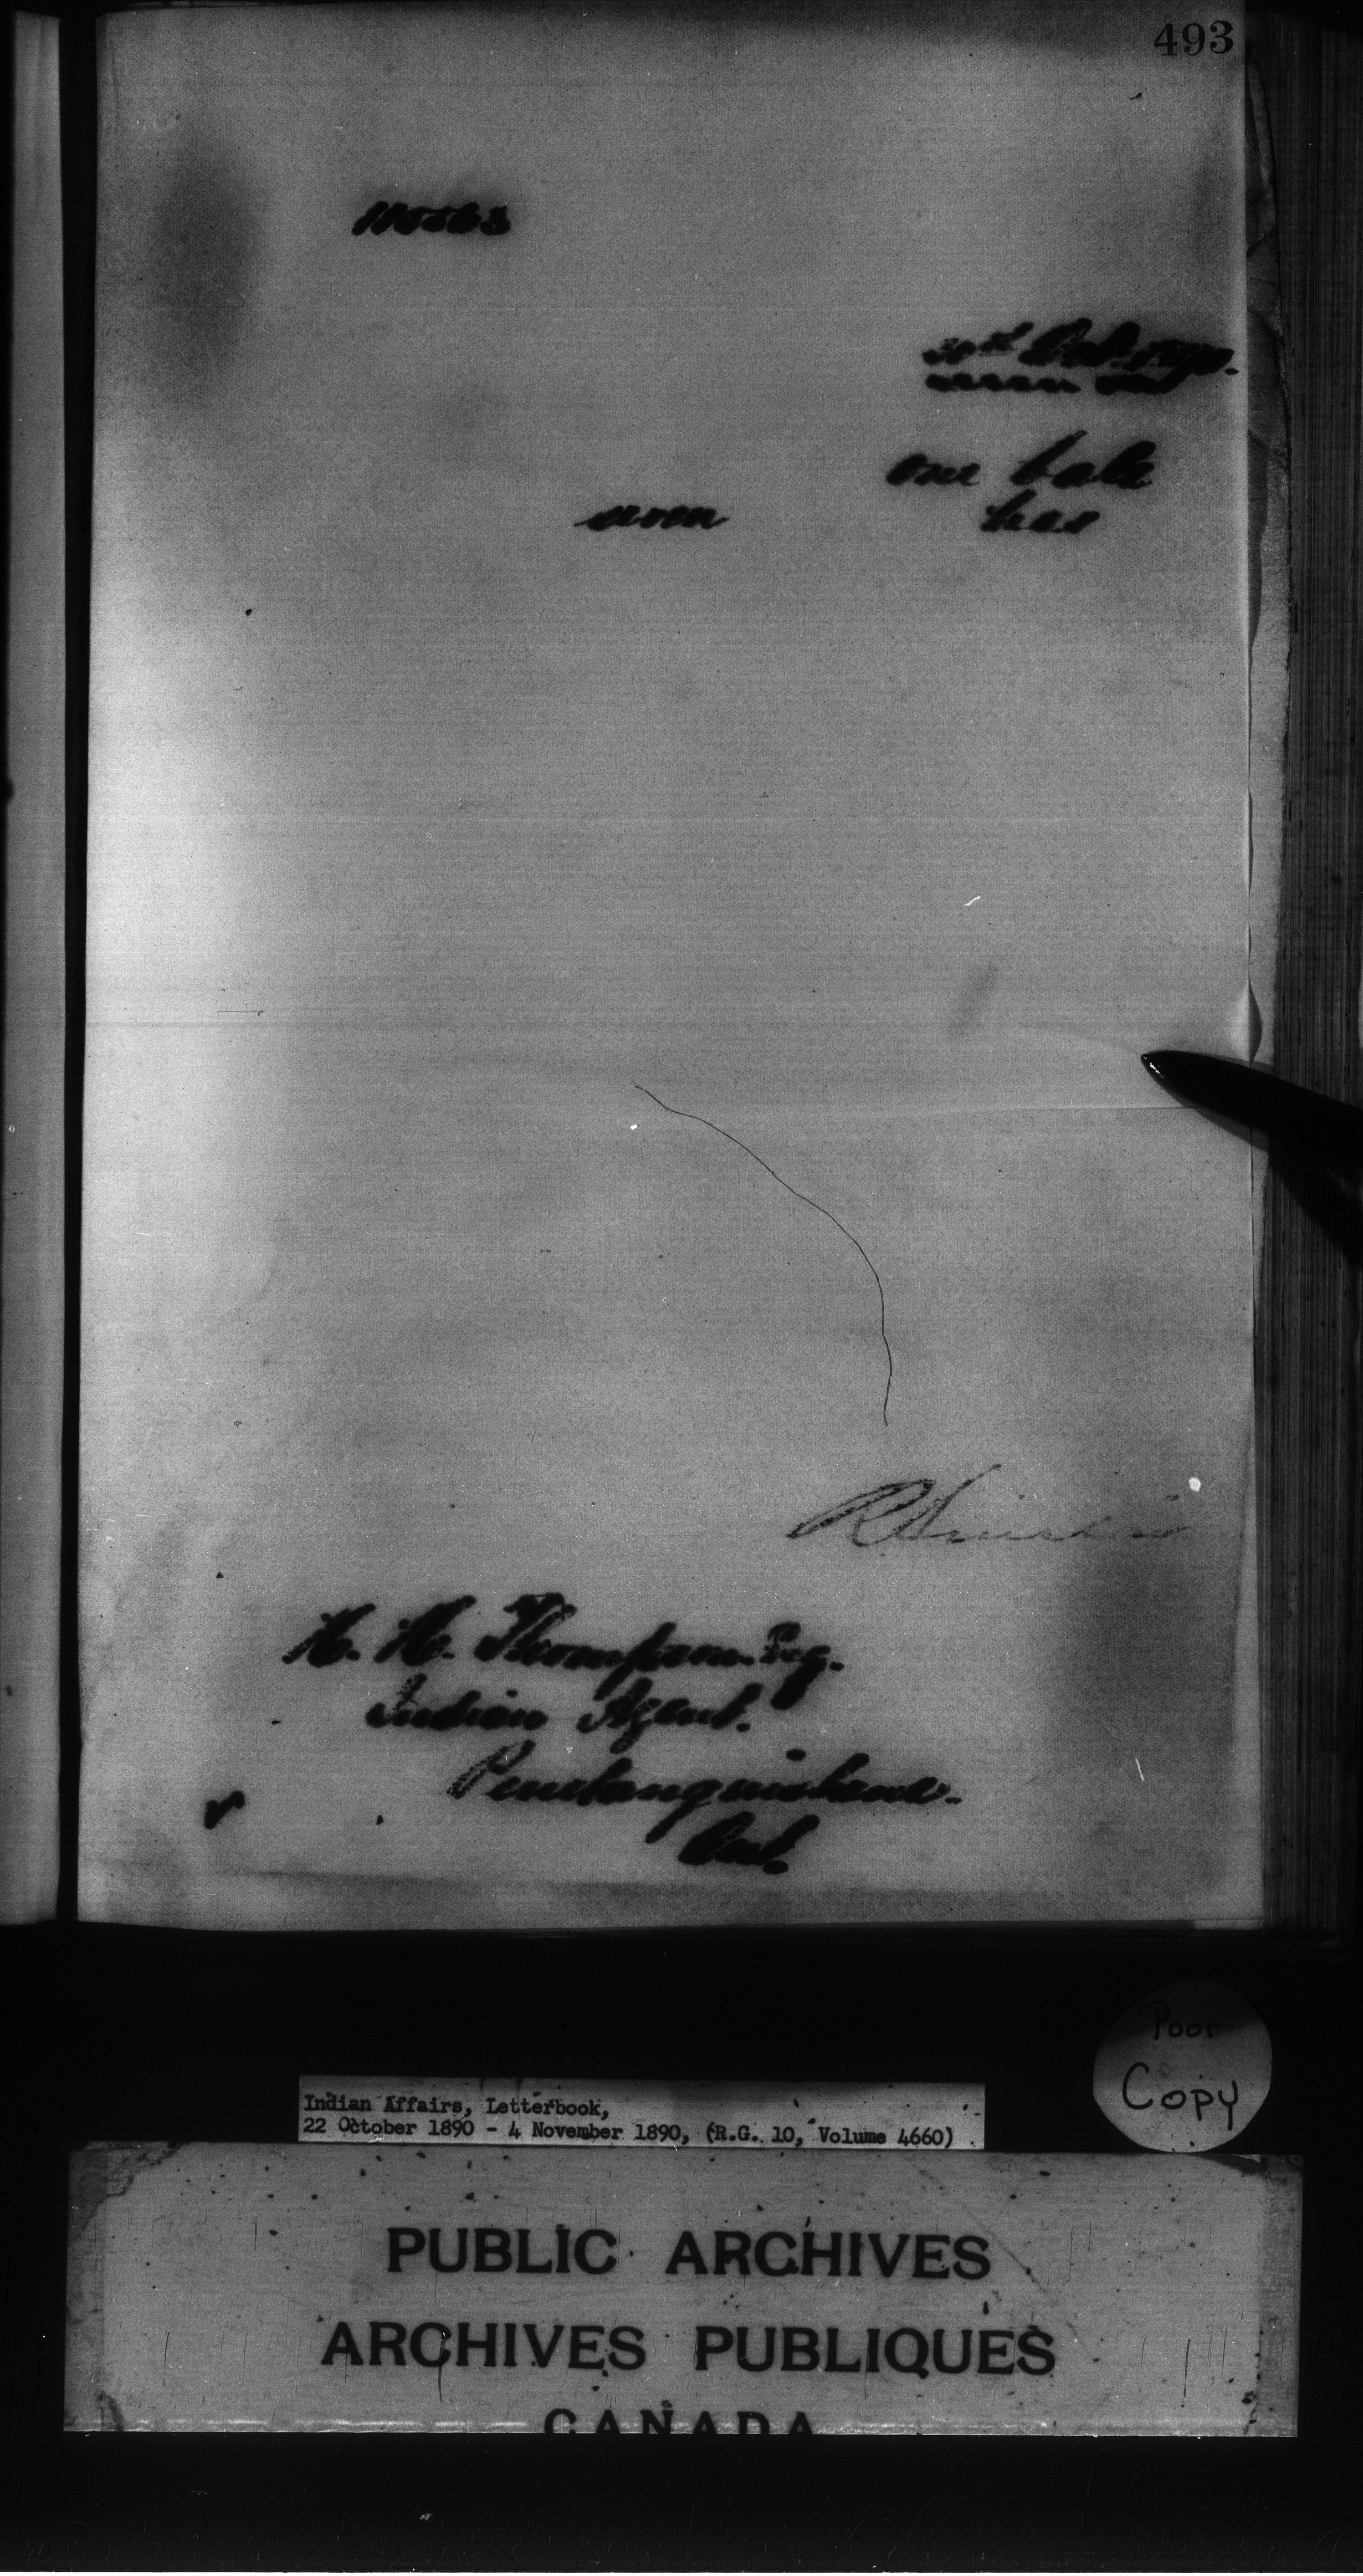 493
30th Oct. 1890.
seven and
one bale
seven has
H. H. Thompson Esq.
Indian Agent.
Penetanguishene.
Ont.
Poor
Copy
Indian Affairs, Letterbook,
22 October 1890 - 4 November 1890, (R.G. 10, Volume 4660)
PUBLIC ARCHIVES
ARCHIVES PUBLIQUES
CANADA